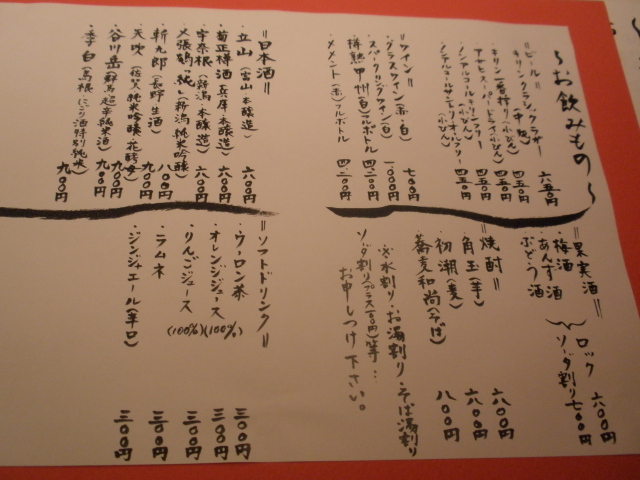 〜お飲みもの〜
=ビール=
キリンクラシックラガー(中瓶) 六五〇円
キリン一番搾り(小びん) 四五〇円
アサヒスーパードライ(小びん) 四五〇円
ノンアルコールキリンフリー(小びん) 四五〇円
ノンアルコールサントリーオールフリー(小びん) 四五〇円
=ワイン=
・グラスワイン(赤・白) 七〇〇円
・スパークリングワイン(白) 一〇〇〇円
・樽熟甲州(白)フルボトル 四二〇〇円
・メメント(赤)フルボトル 四二〇〇円
=日本酒=
・立山(富山 本醸造) 六〇〇円
・菊正樽酒(兵庫 本醸造) 六〇〇円
・宇奈根(新潟 本醸造) 六〇〇円
・〆張鶴「純」(新潟 純米吟醸) 八〇〇円
・斬九郎(長野 生酒) 九〇〇円
・天吹(佐賀 純米吟醸 花酵母) 九〇〇円
・谷川岳(群馬 超辛純米酒) 九〇〇円
・李白(島根 にごり酒特別純米) 九〇〇円
=果実酒=
梅酒
あんず酒
ぶどう酒
ロック 六〇〇円
ソーダ割り 七〇〇円
=焼酎=
角玉(芋) 六〇〇円
初潮(麦) 六〇〇円
蕎麦和尚(そば) 八〇〇円
※水割り・お湯割り・そば湯割り
ソーダ割り(プラス一〇〇円)等…
お申しつけ下さい。
=ソフトドリンク=
・ウーロン茶 三〇〇円
・オレンジジュース(100%) 三〇〇円
・りんごジュース(100%) 三〇〇円
・ラムネ 三〇〇円
・ジンジャエール(辛口) 三〇〇円